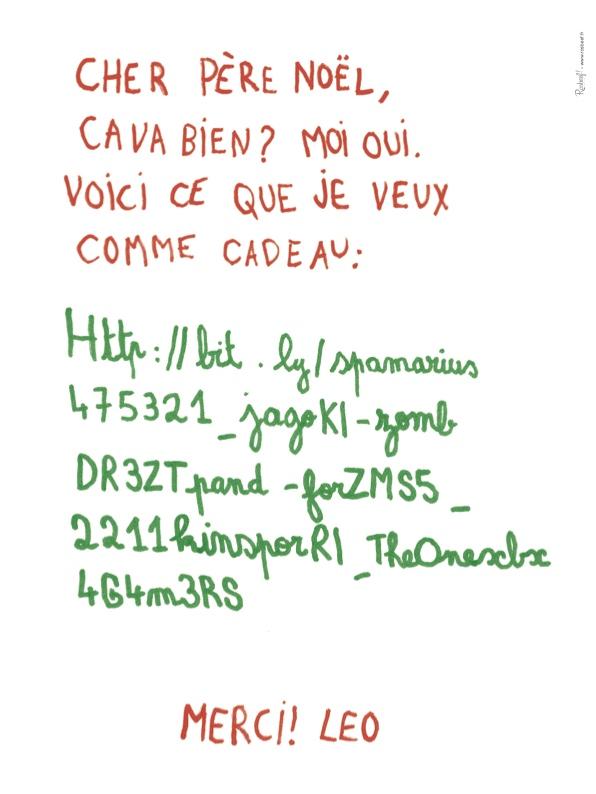 CHER PÈRE NOËL,
CA VA BIEN? MOI OUI.
VOICI CE QUE JE VEUX
COMME CADEAU:
Http://bit.ly/spamarius
475321_jagoKl-zomb
DR3ZTpand-forZMS5_
2211kinsporRl_TheOnexbx
4G4m3RS
MERCI! LEO